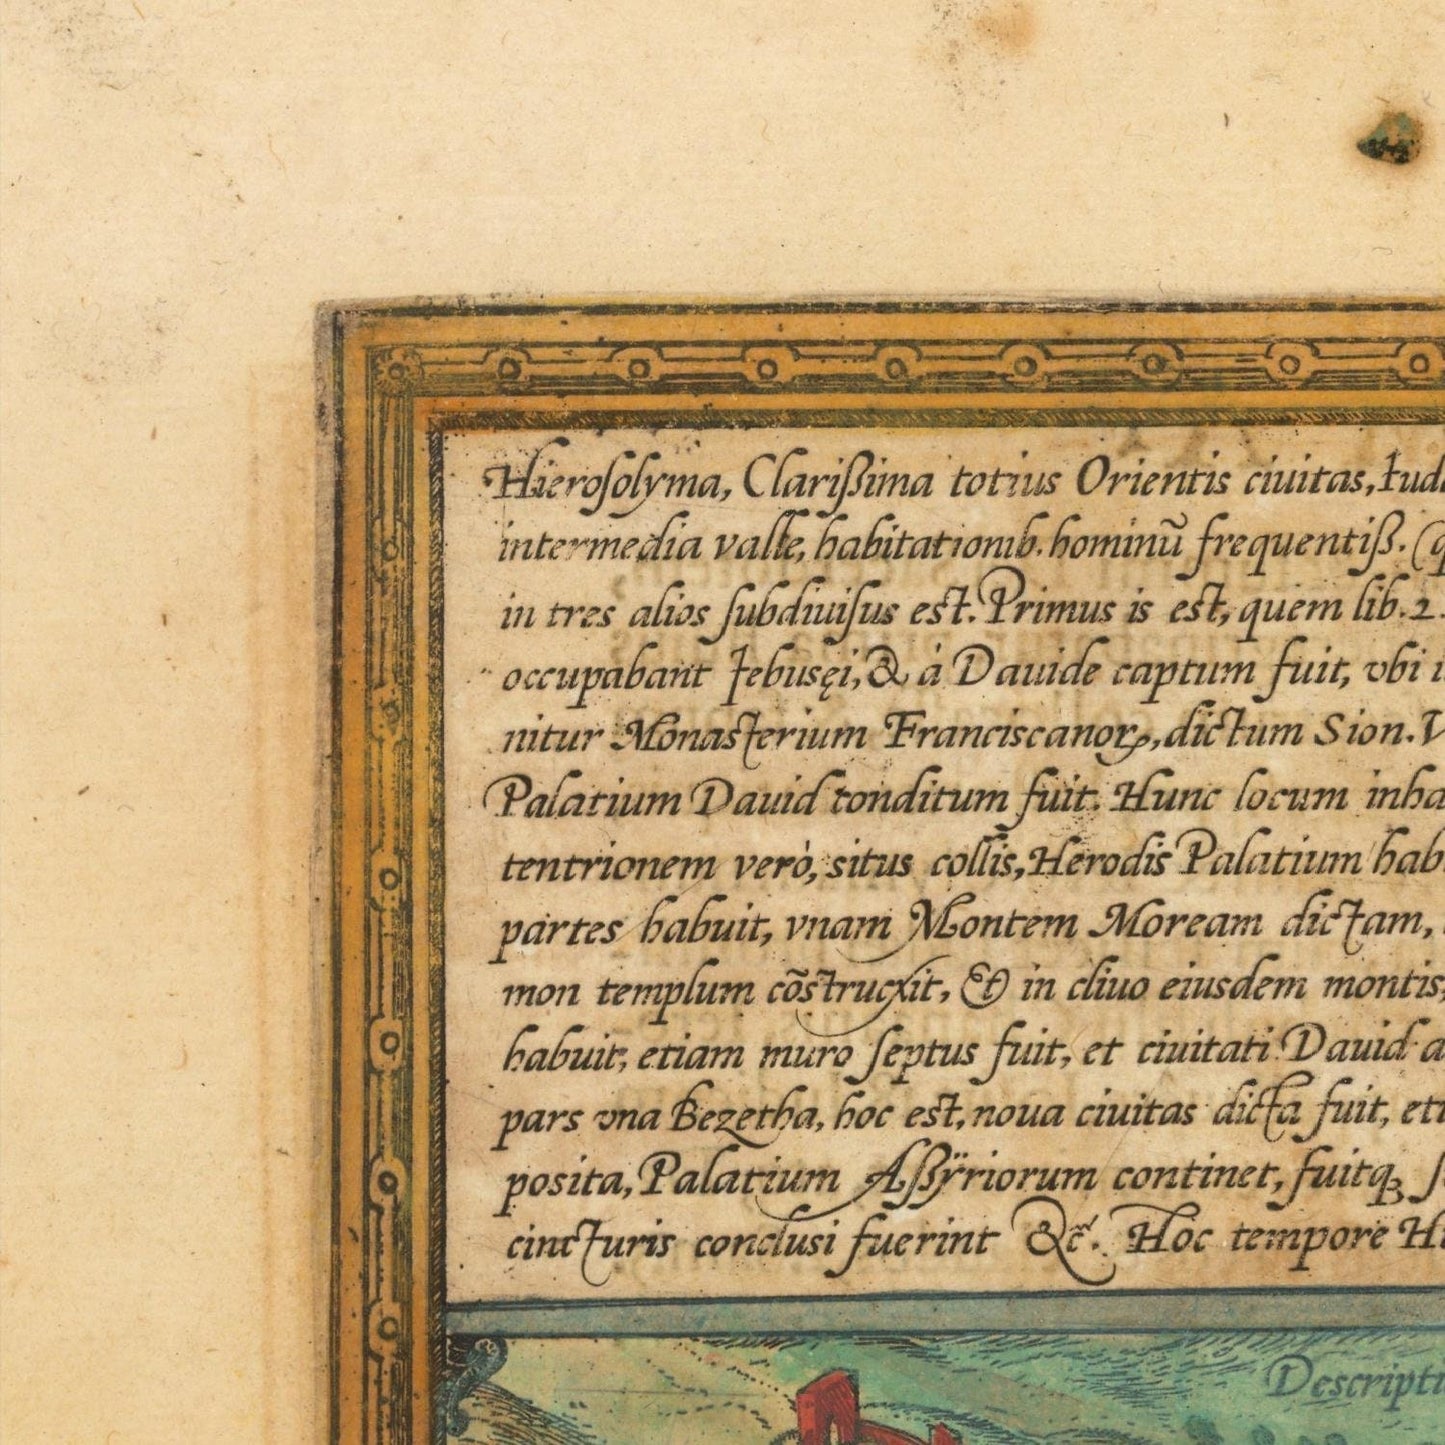 Hieroſolyma, Clarißima totius Orientis ciuitas,
intermedia valle, habitationib. hominũ frequentiß. (
in tres alios ſubdiuiſus est. Primus is est, quem lib. 2.
occupabant Jebusęi, & à Dauide captum fuit, vbi
nitur Monasterium Franciscanorꝝ, dictum Sion. V
Palatium Dauid conditum fuit. Hunc locum inha
tentrionem verò, situs collis, Herodis Palatium hab
partes habuit, vnam Montem Moream dictam,
mon templum cõstrucxit, & in cliuo eiusdem montis,
habuit, etiam muro ſeptus fuit, et ciuitati Dauid a
pars vna Bezetha, hoc est, noua ciuitas dicta fuit, eti
posita, Palatium Aſßÿriorum continet, fuitqꝫ ſ
cincturis conclusi fuerint &c̃. Hoc tempore Hi
Descripti